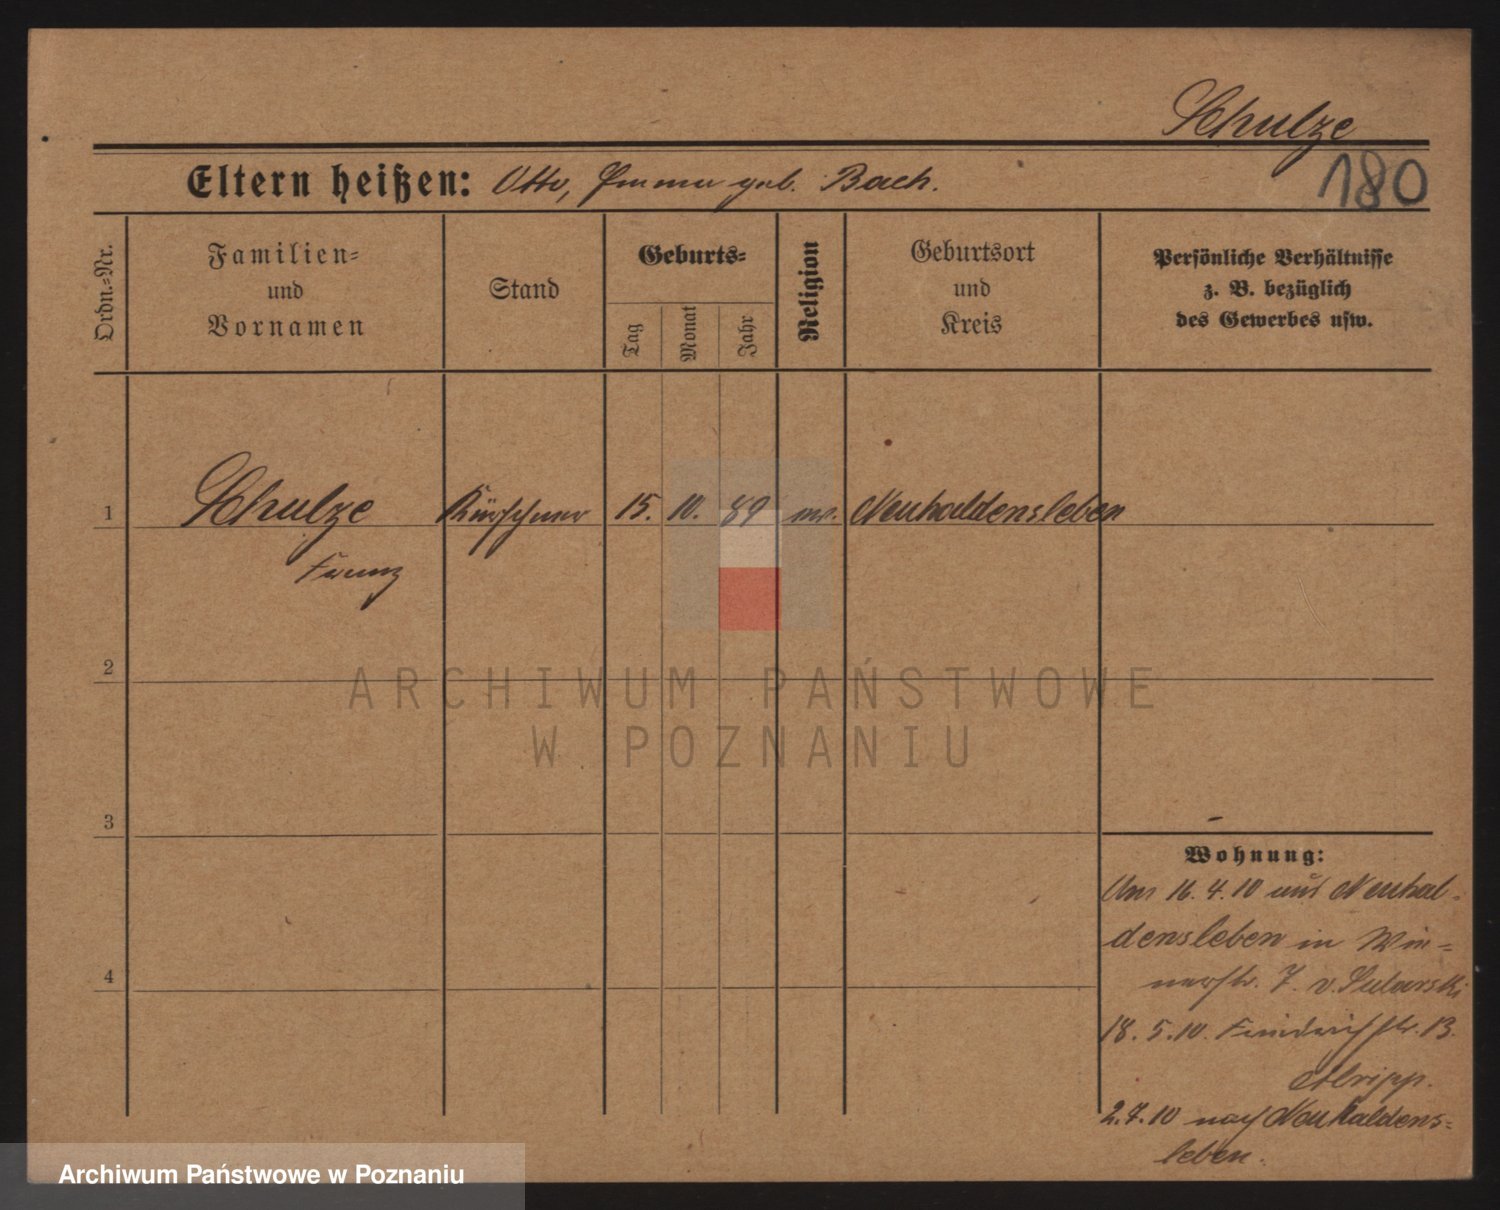 Schulze
180
Eltern heißen: Otto, Emma geb. Bach.
Ordn.-Nr.
Familien-
und
Vornamen
Stand
Geburts-
Tag
Monat
Jahr
Religion
Geburtsort
und
Kreis
Persönliche Verhältnisse
z. B. bezüglich
des Gewerbes usw.
1 Schulze Kürschner 15. 10. 89 ev. Neuhaldensleben
Franz
2
3
4
Wohnung:
Am 16.4.10 aus Neuhal-
densleben in
7. v.
18.5.10. Friedrichstr. 13.
2.7.10 nach Neuhaldens-
leben.
ARCHIWUM PAŃSTWOWE
W POZNANIU
Archiwum Państwowe w Poznaniu